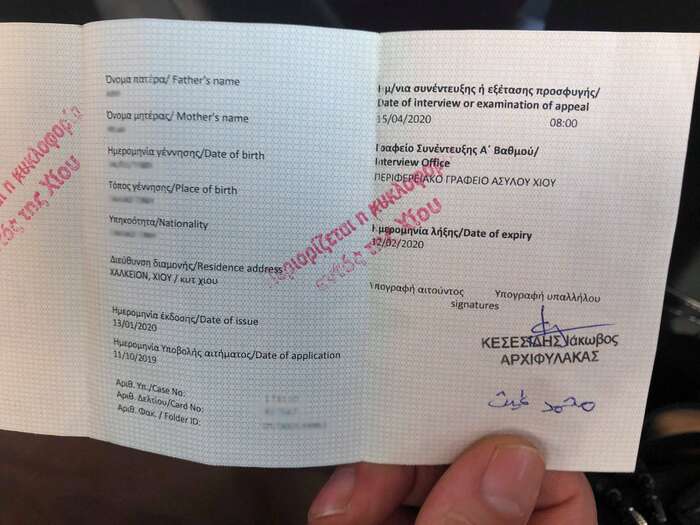 Όνομα πατέρα/ Father's name
Όνομα μητέρας/ Mother's name
Ημερομηνία γέννησης/Date of birth
Τόπος γέννησης/Place of birth
Υπηκοότητα/Nationality
Διεύθυνση διαμονής/Residence address
ΧΑΛΚΕΙΟΝ, ΧΙΟΥ / κυτ χιου
Ημερομηνία έκδοσης/Date of issue
13/01/2020
Ημερομηνία Υποβολής αιτήματος/Date of application
11/10/2019
Αριθ. Υπ./Case No:
Αριθ. Δελτίου/Card No:
Αριθ. Φακ. / Folder ID:
Ημ/νια συνέντευξης ή εξέτασης προσφυγής/
Date of interview or examination of appeal
15/04/2020 08:00
Γραφείο Συνέντευξης Α΄ Βαθμού/
Interview Office
ΠΕΡΙΦΕΡΕΙΑΚΟ ΓΡΑΦΕΙΟ ΑΣΥΛΟΥ ΧΙΟΥ
Ημερομηνία λήξης/Date of expiry
12/02/2020
Υπογραφή αιτούντος Υπογραφή υπαλλήλου
signatures
ΚΕΣΕΣΙΔΗΣ Ιάκωβος
ΑΡΧΙΦΥΛΑΚΑΣ
محمد
αι η κυκλοφορία
εντός της Χίου
Περιορίζεται η κυκλοφορ
εντός της Χίου